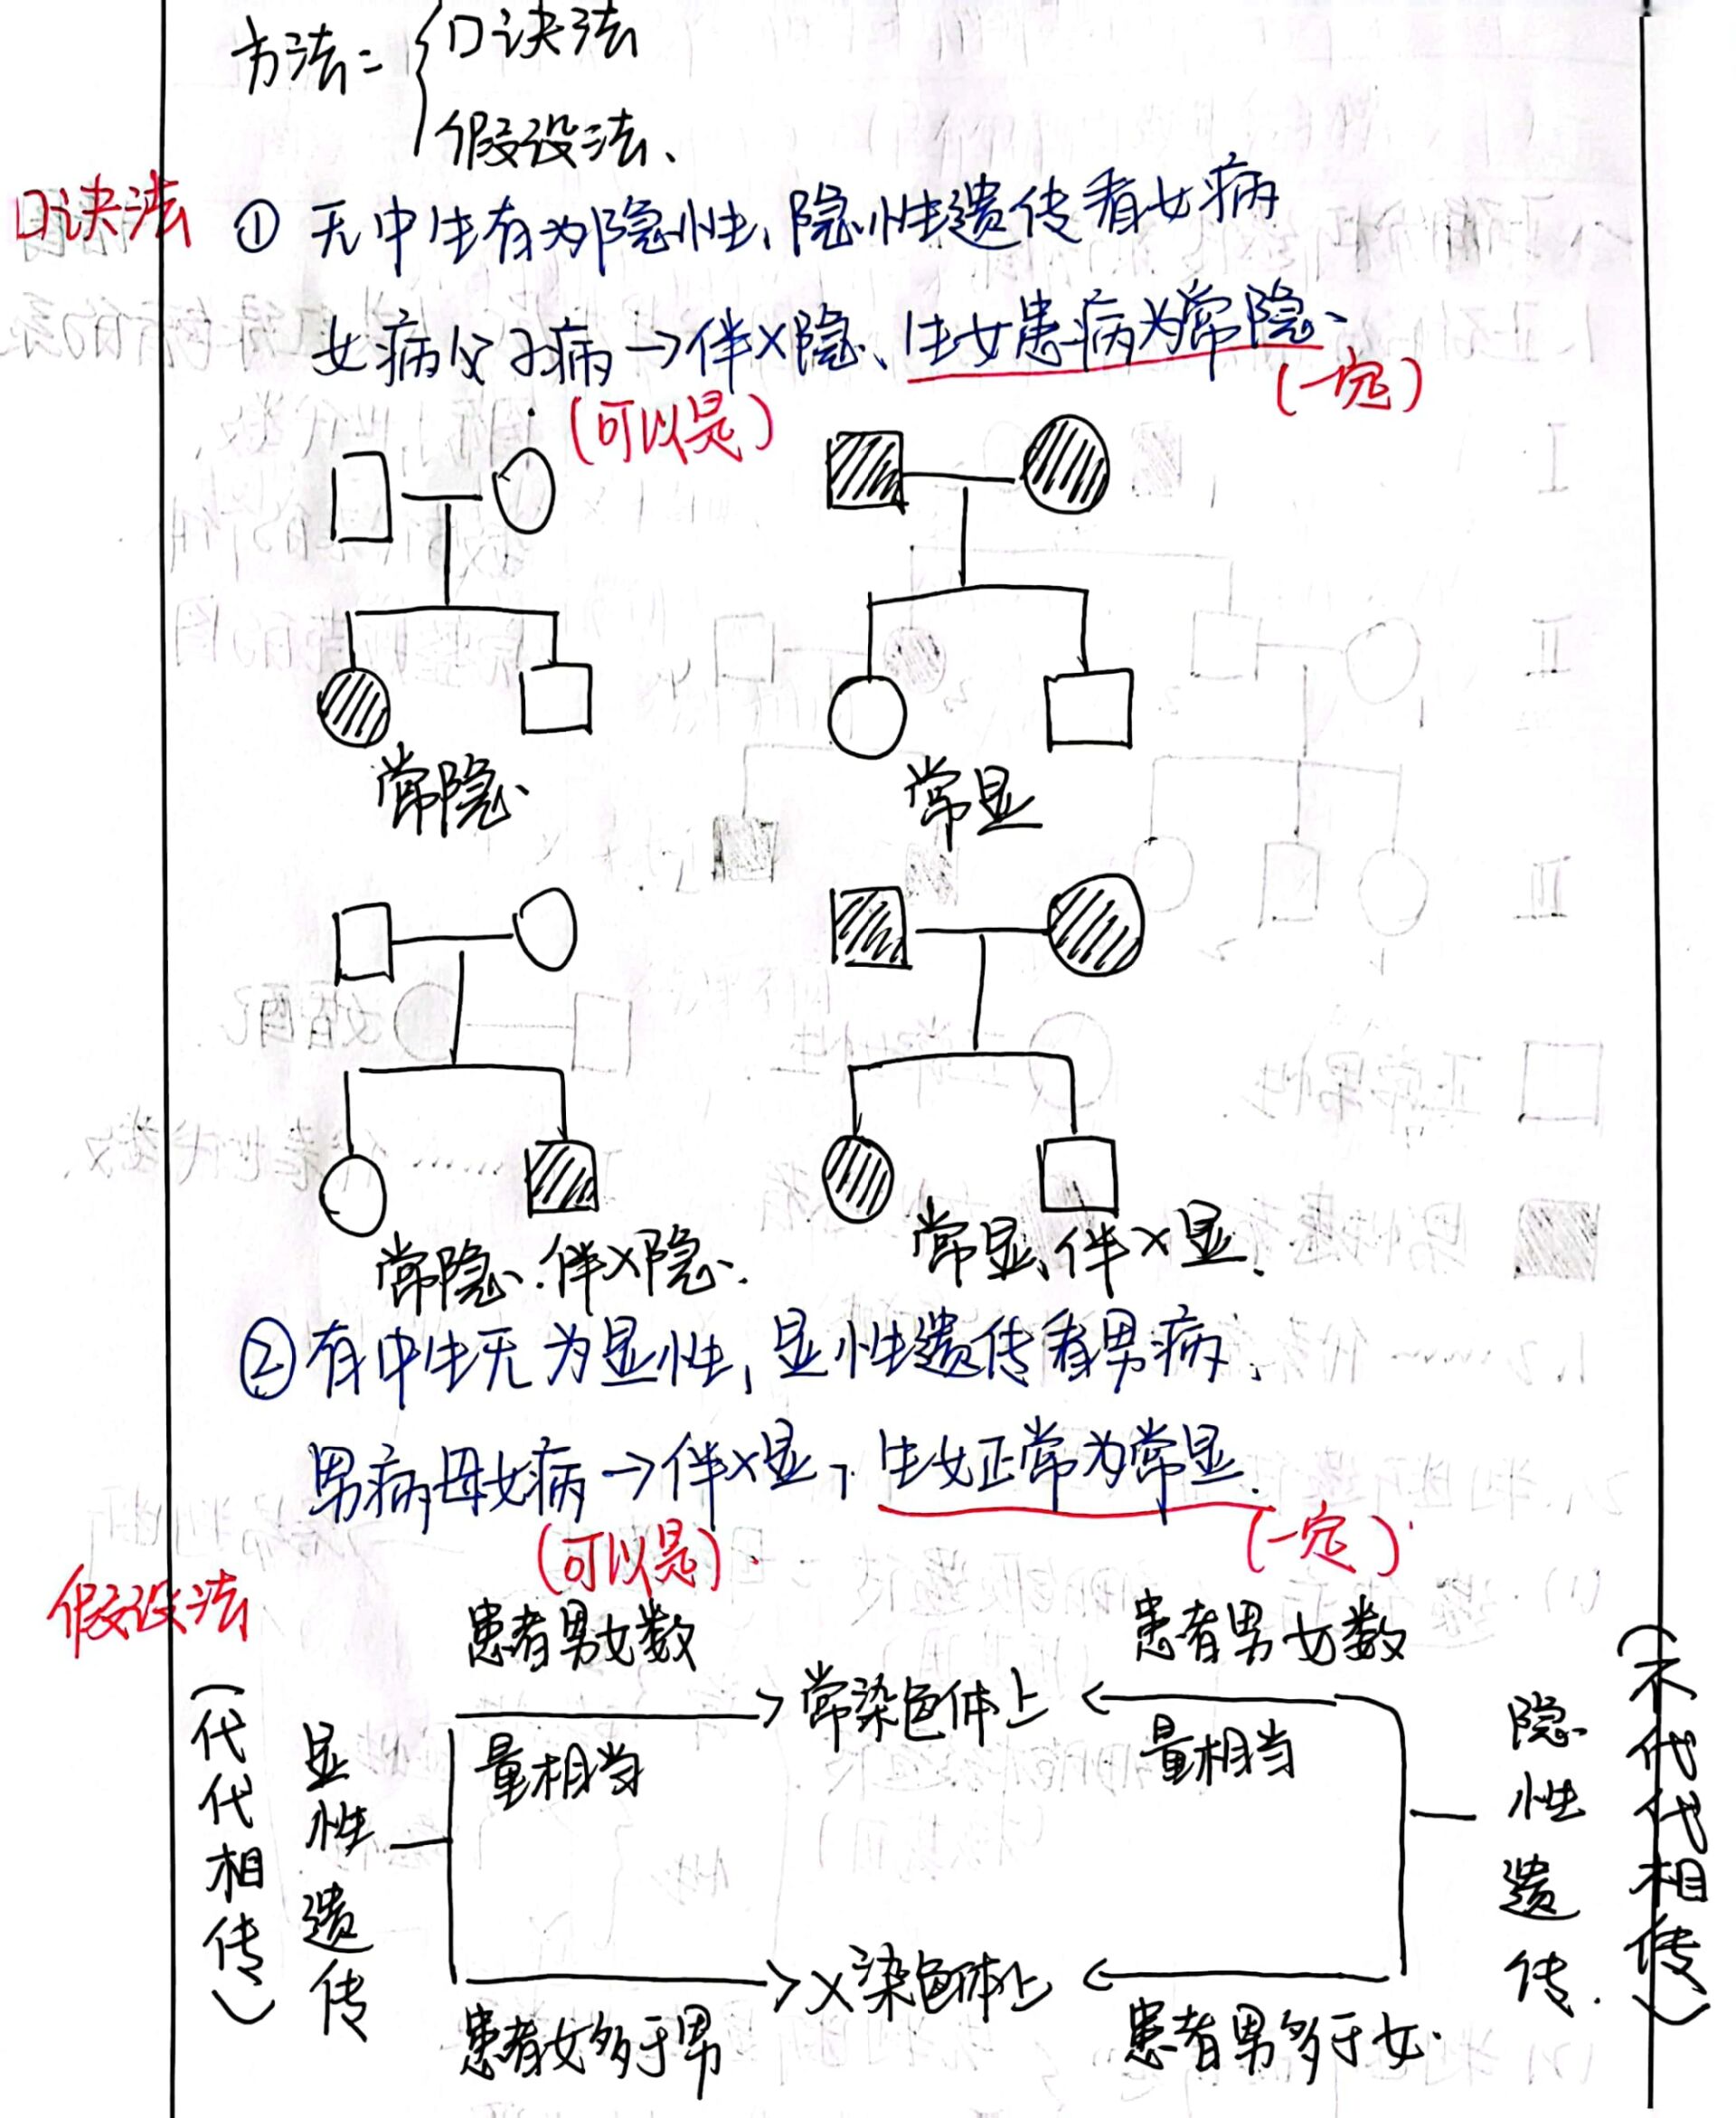 方法:
口诀法
假设法、
口诀法 ① 无中生有为隐性、隐性遗传看女病
女病父子病→伴X隐、生女患病为常隐、
(可以是) (一定)
常隐、 常显
常隐、伴X隐、 常显、伴X显.
② 有中生无为显性,显性遗传看男病,
男病母女病→伴X显,生女正常为常显.
(可以是) (一定)
假设法
(代代相传)
显性遗传
患者男女数
量相当
常染色体上
患者男女数
量相当
患者女多于男
X染色体上
患者男多于女.
隐性遗传.
(不代代相传)